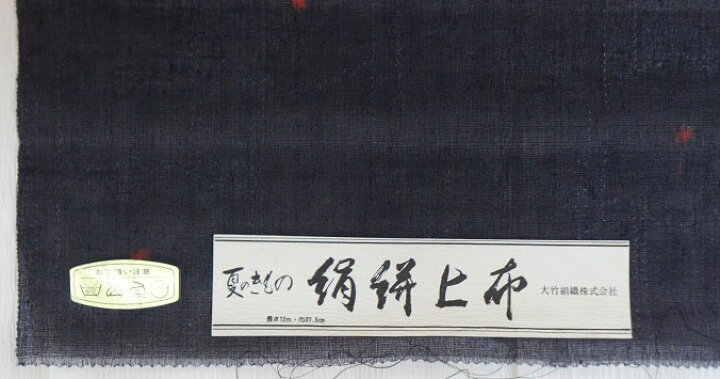 お取扱い注意
夏のきもの 絹絣上布 大竹絹織株式会社
長さ12m・巾37.5cm